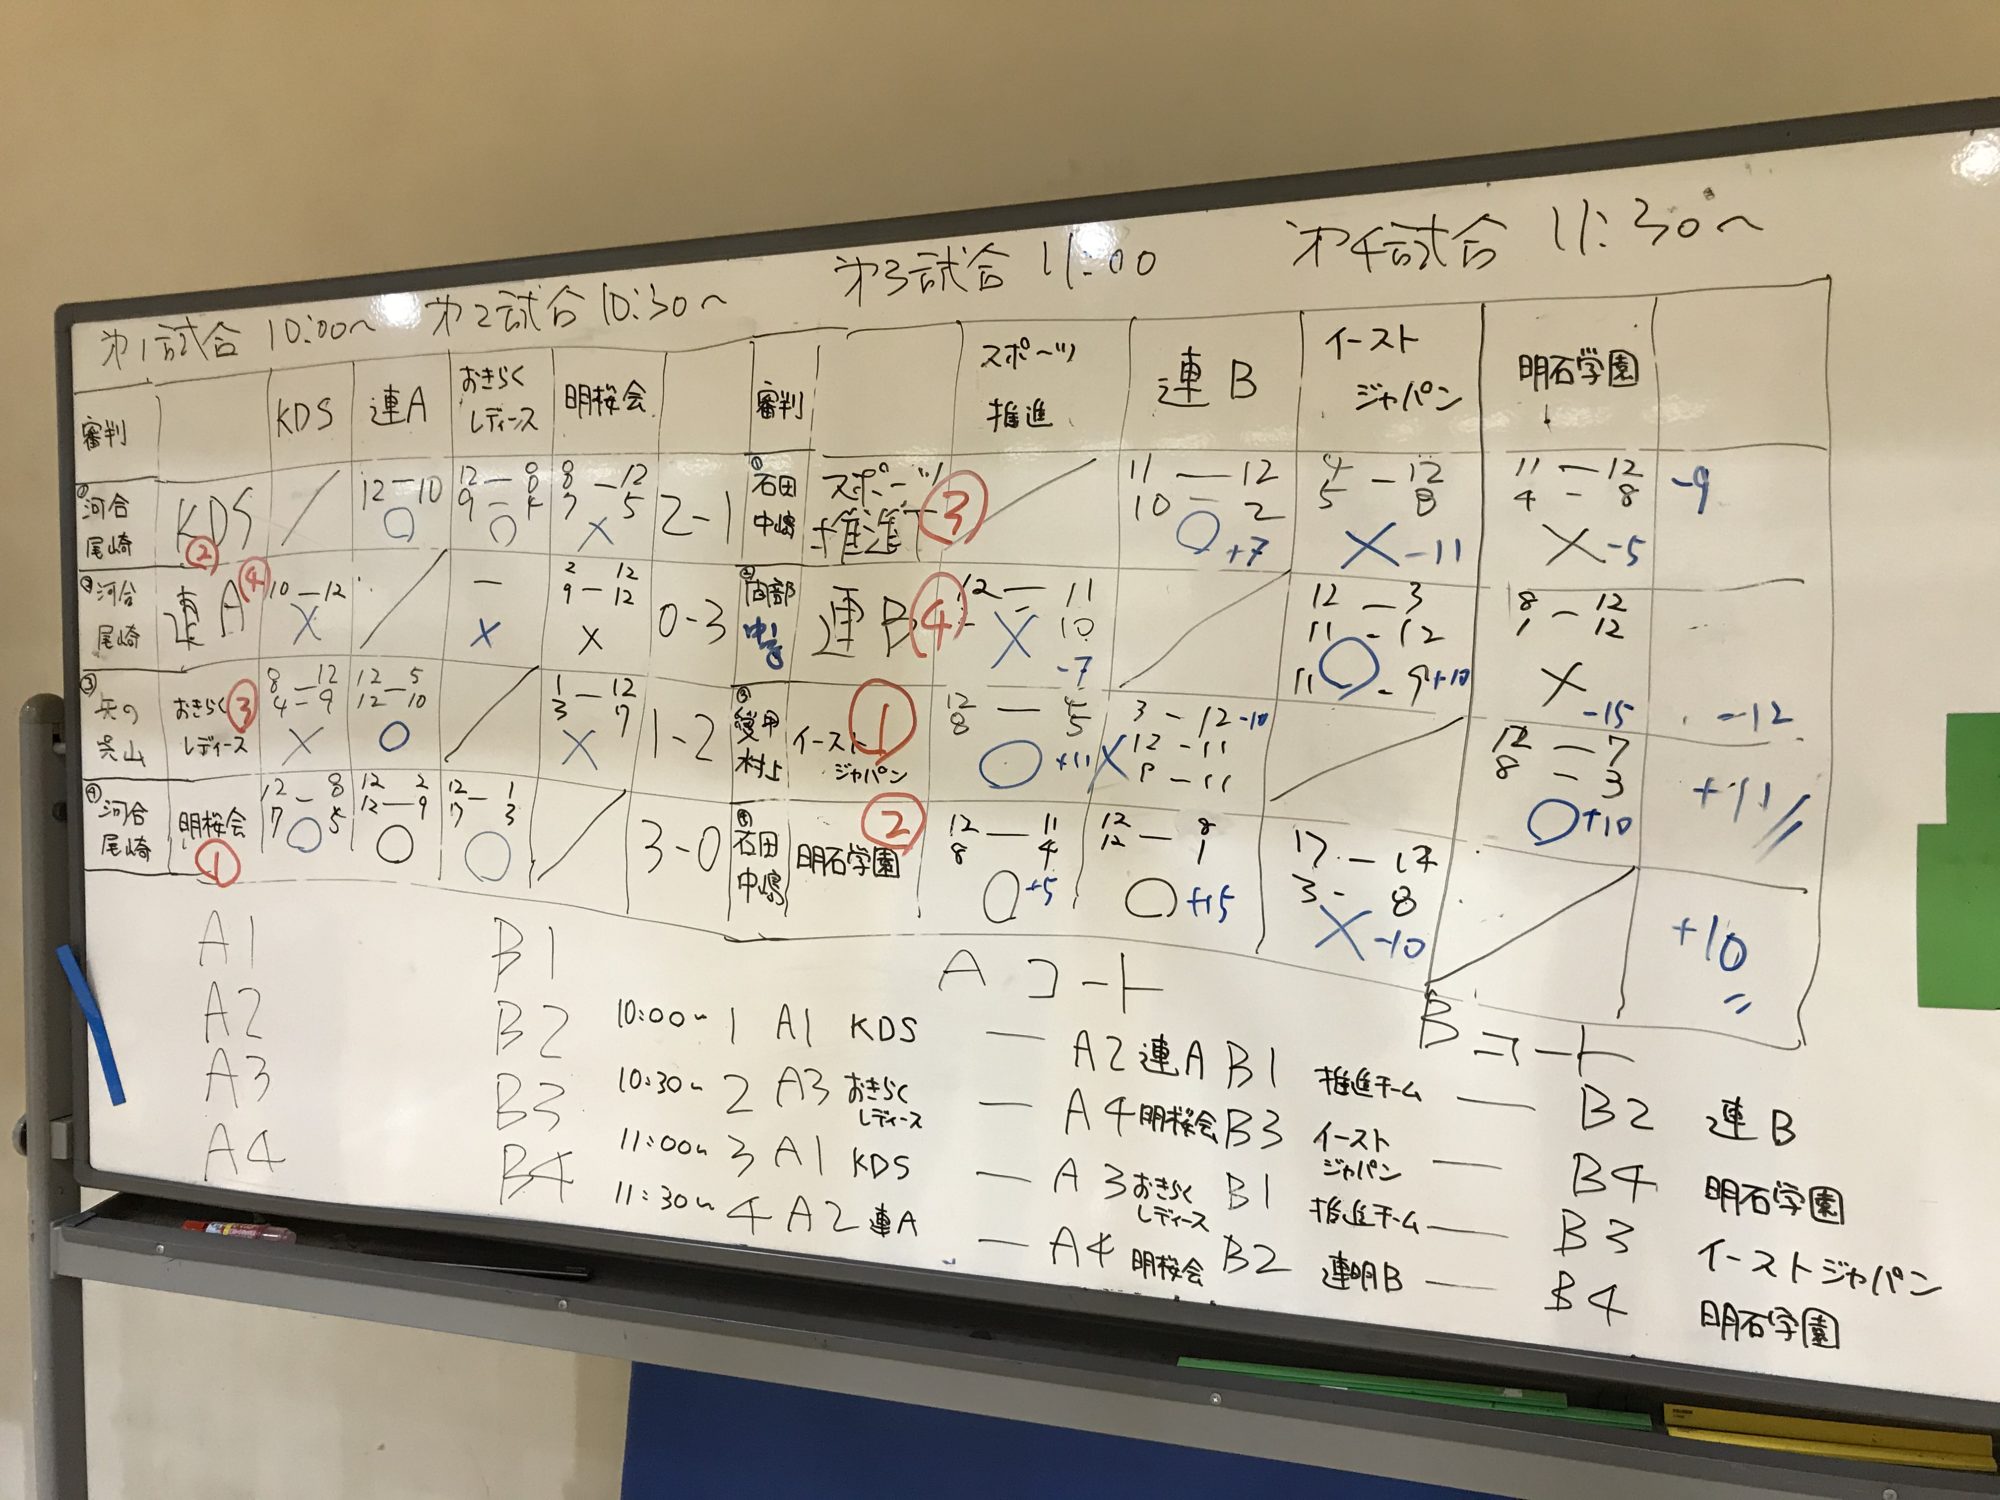 第1試合 10:00~ 第2試合 10:30~ 第3試合 11:00 第4試合 11:30~
審判 KDS 連A おきらくレディース 明桜会
① 河合 尾崎 KDS ② 12-10 ○ 12-8 9-4 ○ 8-12 7-5 × 2-1
② 河合 尾崎 連A ④ 10-12 × - × 2-12 9-12 × 0-3
③ 矢の 呉山 おきらくレディース ③ 8-12 4-9 × 12-5 12-10 ○ 1-12 3-7 × 1-2
④ 河合 尾崎 明桜会 ① 12-8 7-5 ○ 12-2 12-9 ○ 12-1 7-3 ○ 3-0
審判 スポーツ推進 連B イーストジャパン 明石学園
① 石田 中嶋 スポーツ推進 ③ 11-12 10-2 ○ +7 4-12 5-8 × -11 11-12 4-8 × -5 -9
② 連B ④ 12-11 10 × -7 12-3 11-12 11-9 ○ +10 8-12 1-12 × -15 -12
③ 愛甲 村上 イーストジャパン ① 12-4 8-5 ○ +11 3-12 -10 12-11 9-11 × 12-7 8-3 ○ +10 +11
④ 石田 中嶋 明石学園 ② 12-11 8-4 ○ +5 12-8 12-1 ○ +15 3-8 × -10 +10
A1 B1
A2 B2
A3 B3
A4 B4
Aコート Bコート
10:00~ 1 A1 KDS — A2 連A B1 推進チーム — B2 連B
10:30~ 2 A3 おきらくレディース — A4 明桜会 B3 イーストジャパン — B4 明石学園
11:00~ 3 A1 KDS — A3 おきらくレディース B1 推進チーム — B3 イーストジャパン
11:30~ 4 A2 連A — A4 明桜会 B2 連明B — B4 明石学園